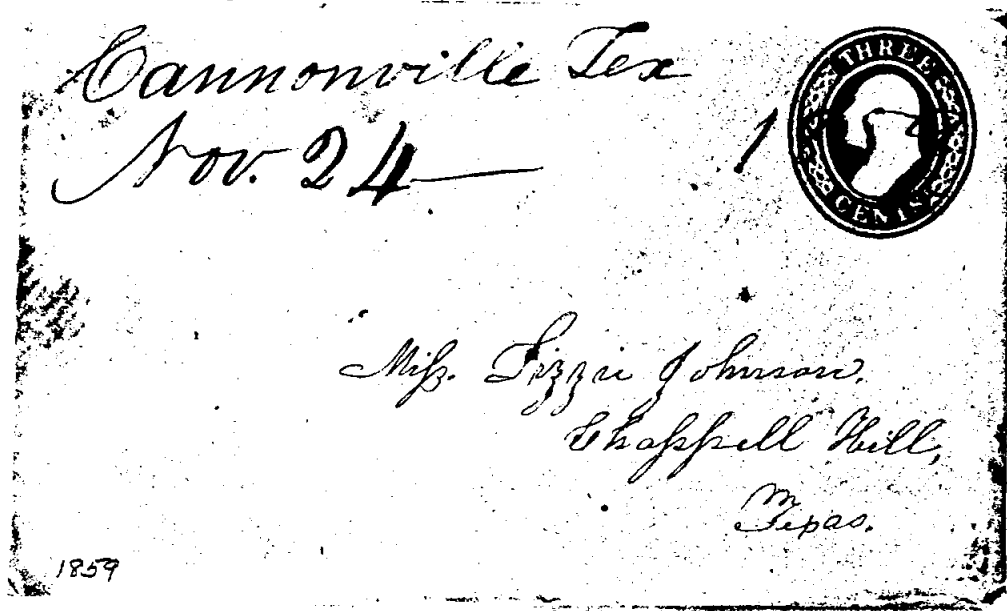 Cannonville Tex
Nov. 24
THREE
CENTS
Miss. Lizzie Johnson.
Chappell Hill,
Texas.
1859